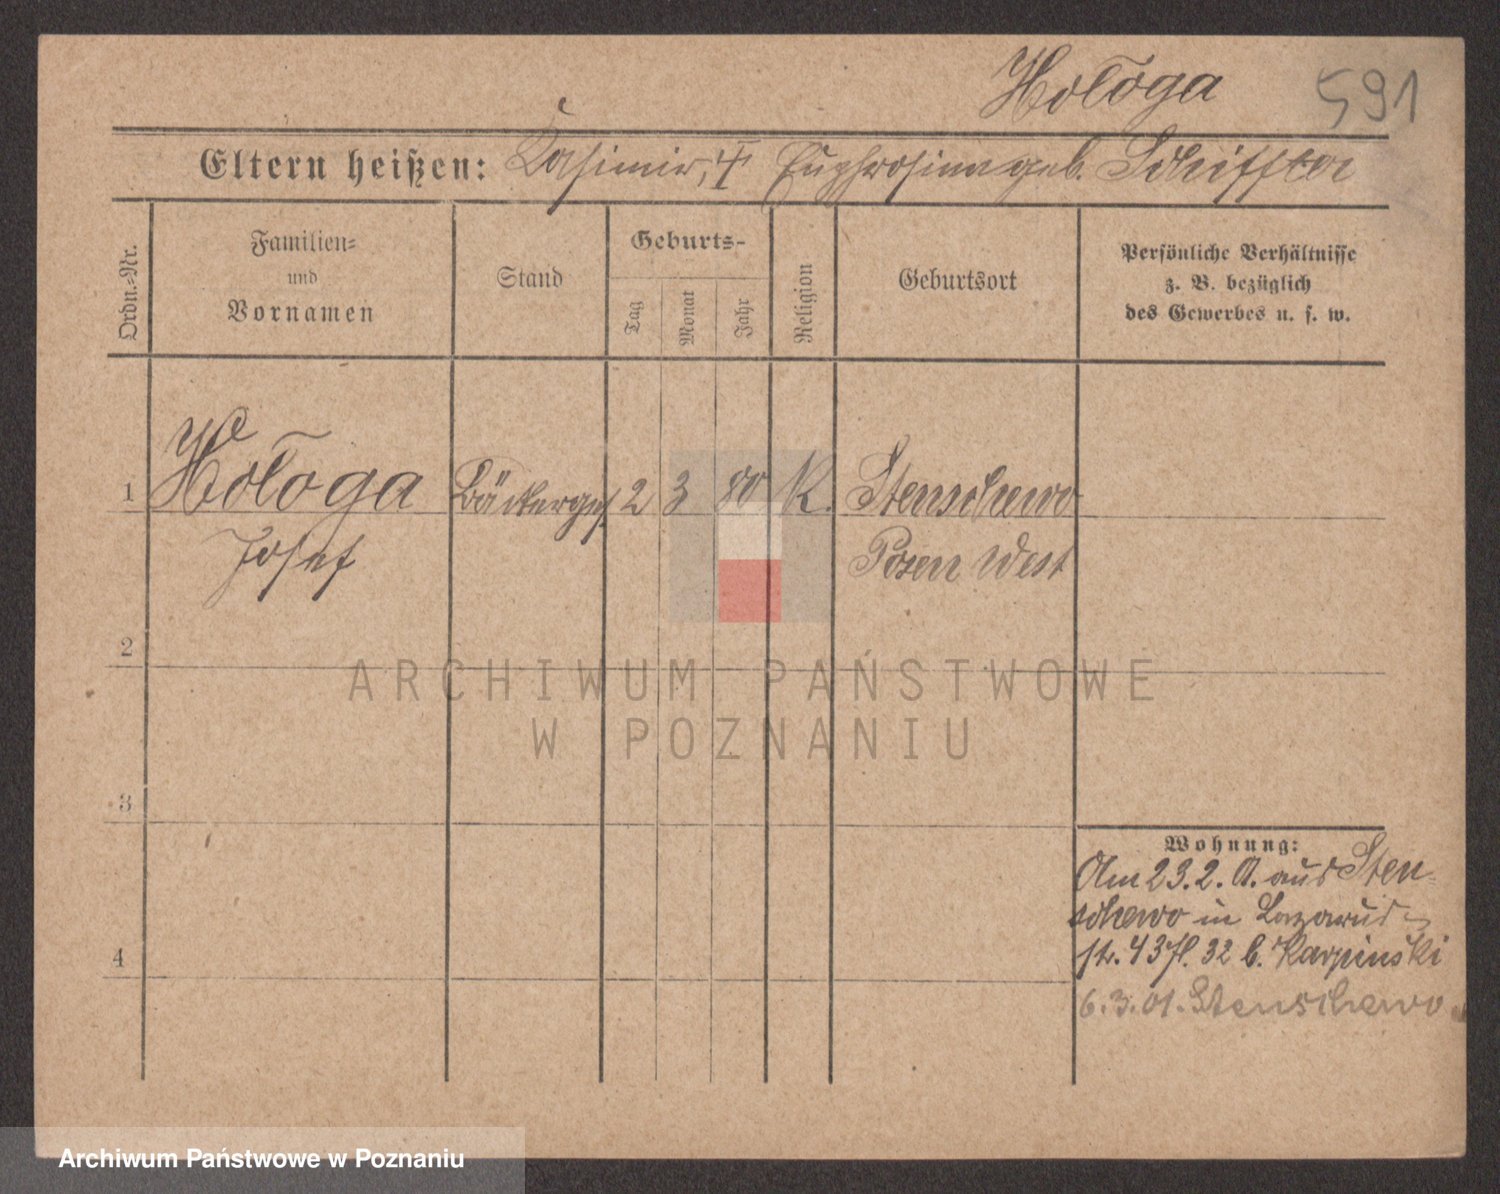 Hołoga 591
Eltern heißen: Kasimir, † Euphrosina geb.
Ordn.-Nr.
Familien-
und
Vornamen
Stand
Geburts-
Tag
Monat
Jahr
Religion
Geburtsort
Persönliche Verhältnisse
z. B. bezüglich
des Gewerbes u. s. w.
1 Hołoga Bäckerges. 2 3 80 K. Stenschewo
Josef Posen West
2
3
4
Wohnung:
Am 23.2. 01. aus Sten-
schewo in Lazarus-
str. 43 32 b. Karpinski
6.3.01. Stenschewo
ARCHIWUM PAŃSTWOWE
W POZNANIU
Archiwum Państwowe w Poznaniu